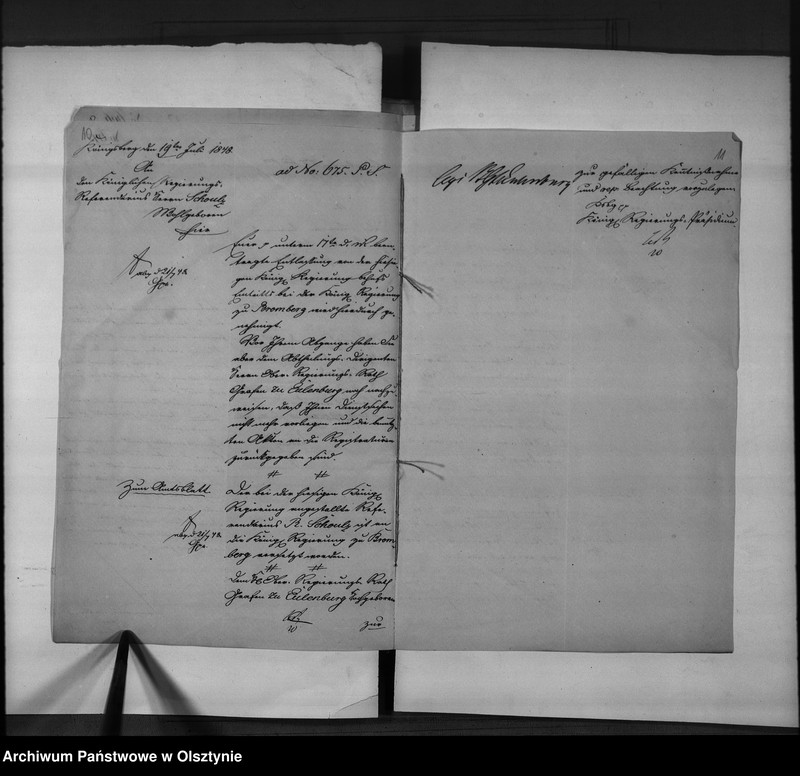 10
Königsberg den 19ten Juli 1848.
An
den Königlichen Regierungs-
Referendarius Herrn Schoultz
Wohlgeboren
hier
ad No. 675. P. S.
unterm 17ten d. M. bean-
tragte Entlassung von der hiesi-
gen Königl. Regierung behufs
Eintritts bei der Königl. Regierung
zu Bromberg wird hierdurch ge-
nehmigt.
Vor Ihrem Abgange haben Sie
aber dem Abtheilungs-Dirigenten
Herrn Ober-Regierungs-Rath
Grafen zu Eulenburg noch nachzu-
weisen, daß Ihnen Dienstsachen
nicht mehr vorliegen und die benutz-
ten Akten an die Registraturen
zurückgegeben sind.
Zum Amtsblatt.
Der bei der hiesigen Königl.
Regierung angestellte Refe-
rendarius R. Schoultz ist an
die Königl. Regierung zu Brom-
berg versetzt worden.
Dem Ober-Regierungs-Rath
Grafen zu Eulenburg Hochgeboren
zur
11
zur gefälligen Kenntnißnahme
und Beachtung vorzulegen.
Königl. Regierungs-Präsidium
Archiwum Państwowe w Olsztynie